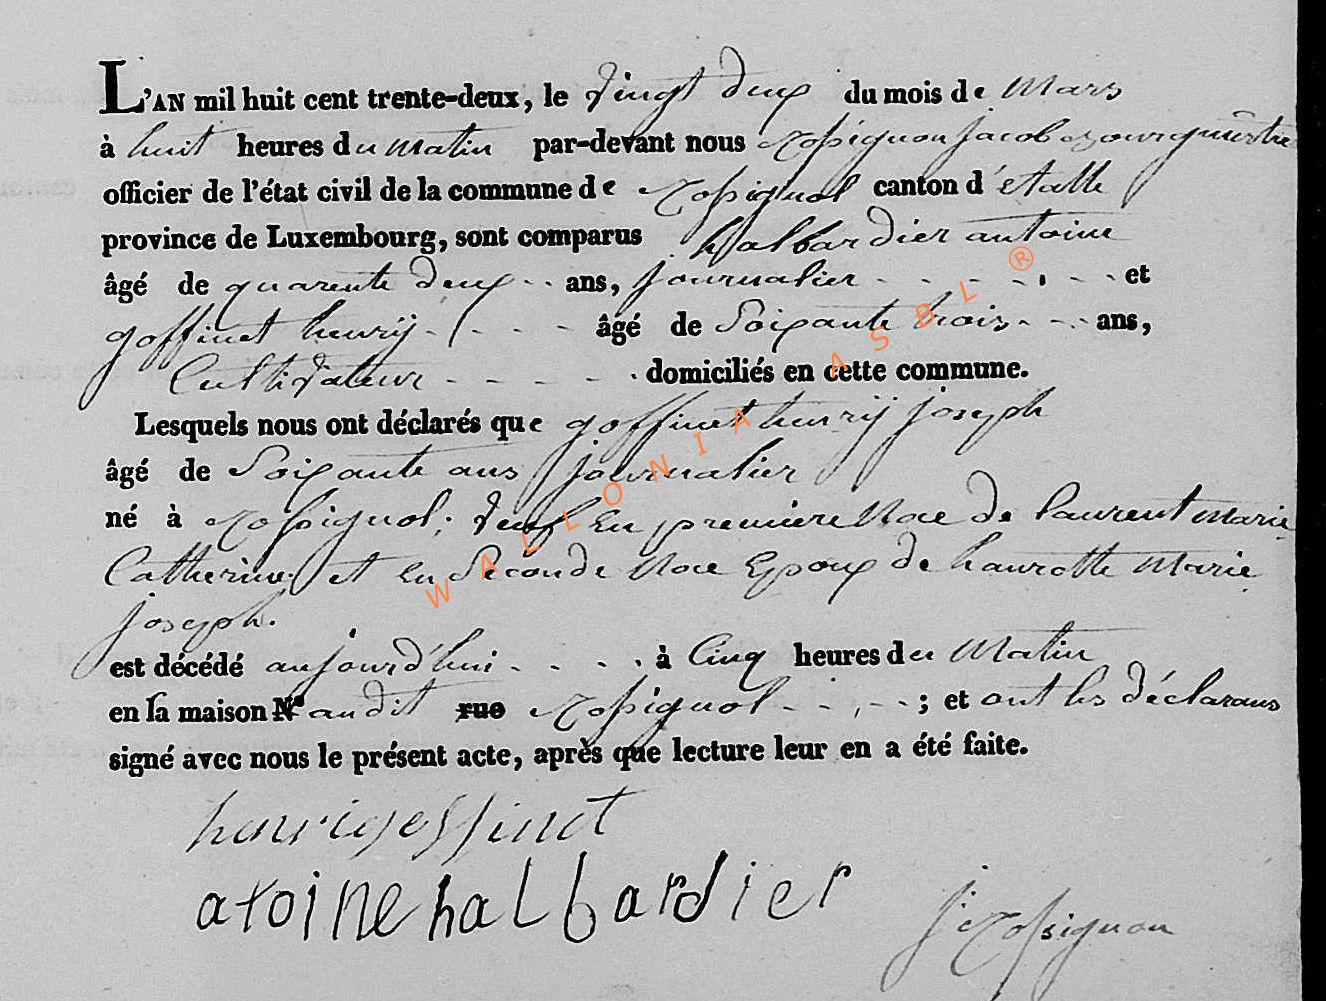 L'AN mil huit cent trente-deux, le vingt deux du mois de Mars
à huit heures du matin par-devant nous Rossignon Jacob bourgmestre
officier de l'état civil de la commune de Rossignol canton d'étalle
province de Luxembourg, sont comparus halbardier antoine
âgé de quarente deux - - ans, journalier - - - - - - et
goffinet henrij - - - - âgé de Soixante trois - - - ans,
Cultivateur - - - - - domiciliés en cette commune.
Lesquels nous ont déclarés que goffinet henrij joseph
âgé de Soixante ans journalier
né à Rossignol; veuf En premiere Noce de laurent marie
Catherine et en Seconde Noce Epoux de hanrotte Marie
joseph.
est décédé aujourd'hui - - - - à Cinq heures du Matin
en la maison N° audit rue Rossignol - - - - ; et ont les déclarans
signé avec nous le présent acte, après que lecture leur en a été faite.
henri goffinet
atoine halbardier
j: Rossignon
WALLONIA ASBL ®